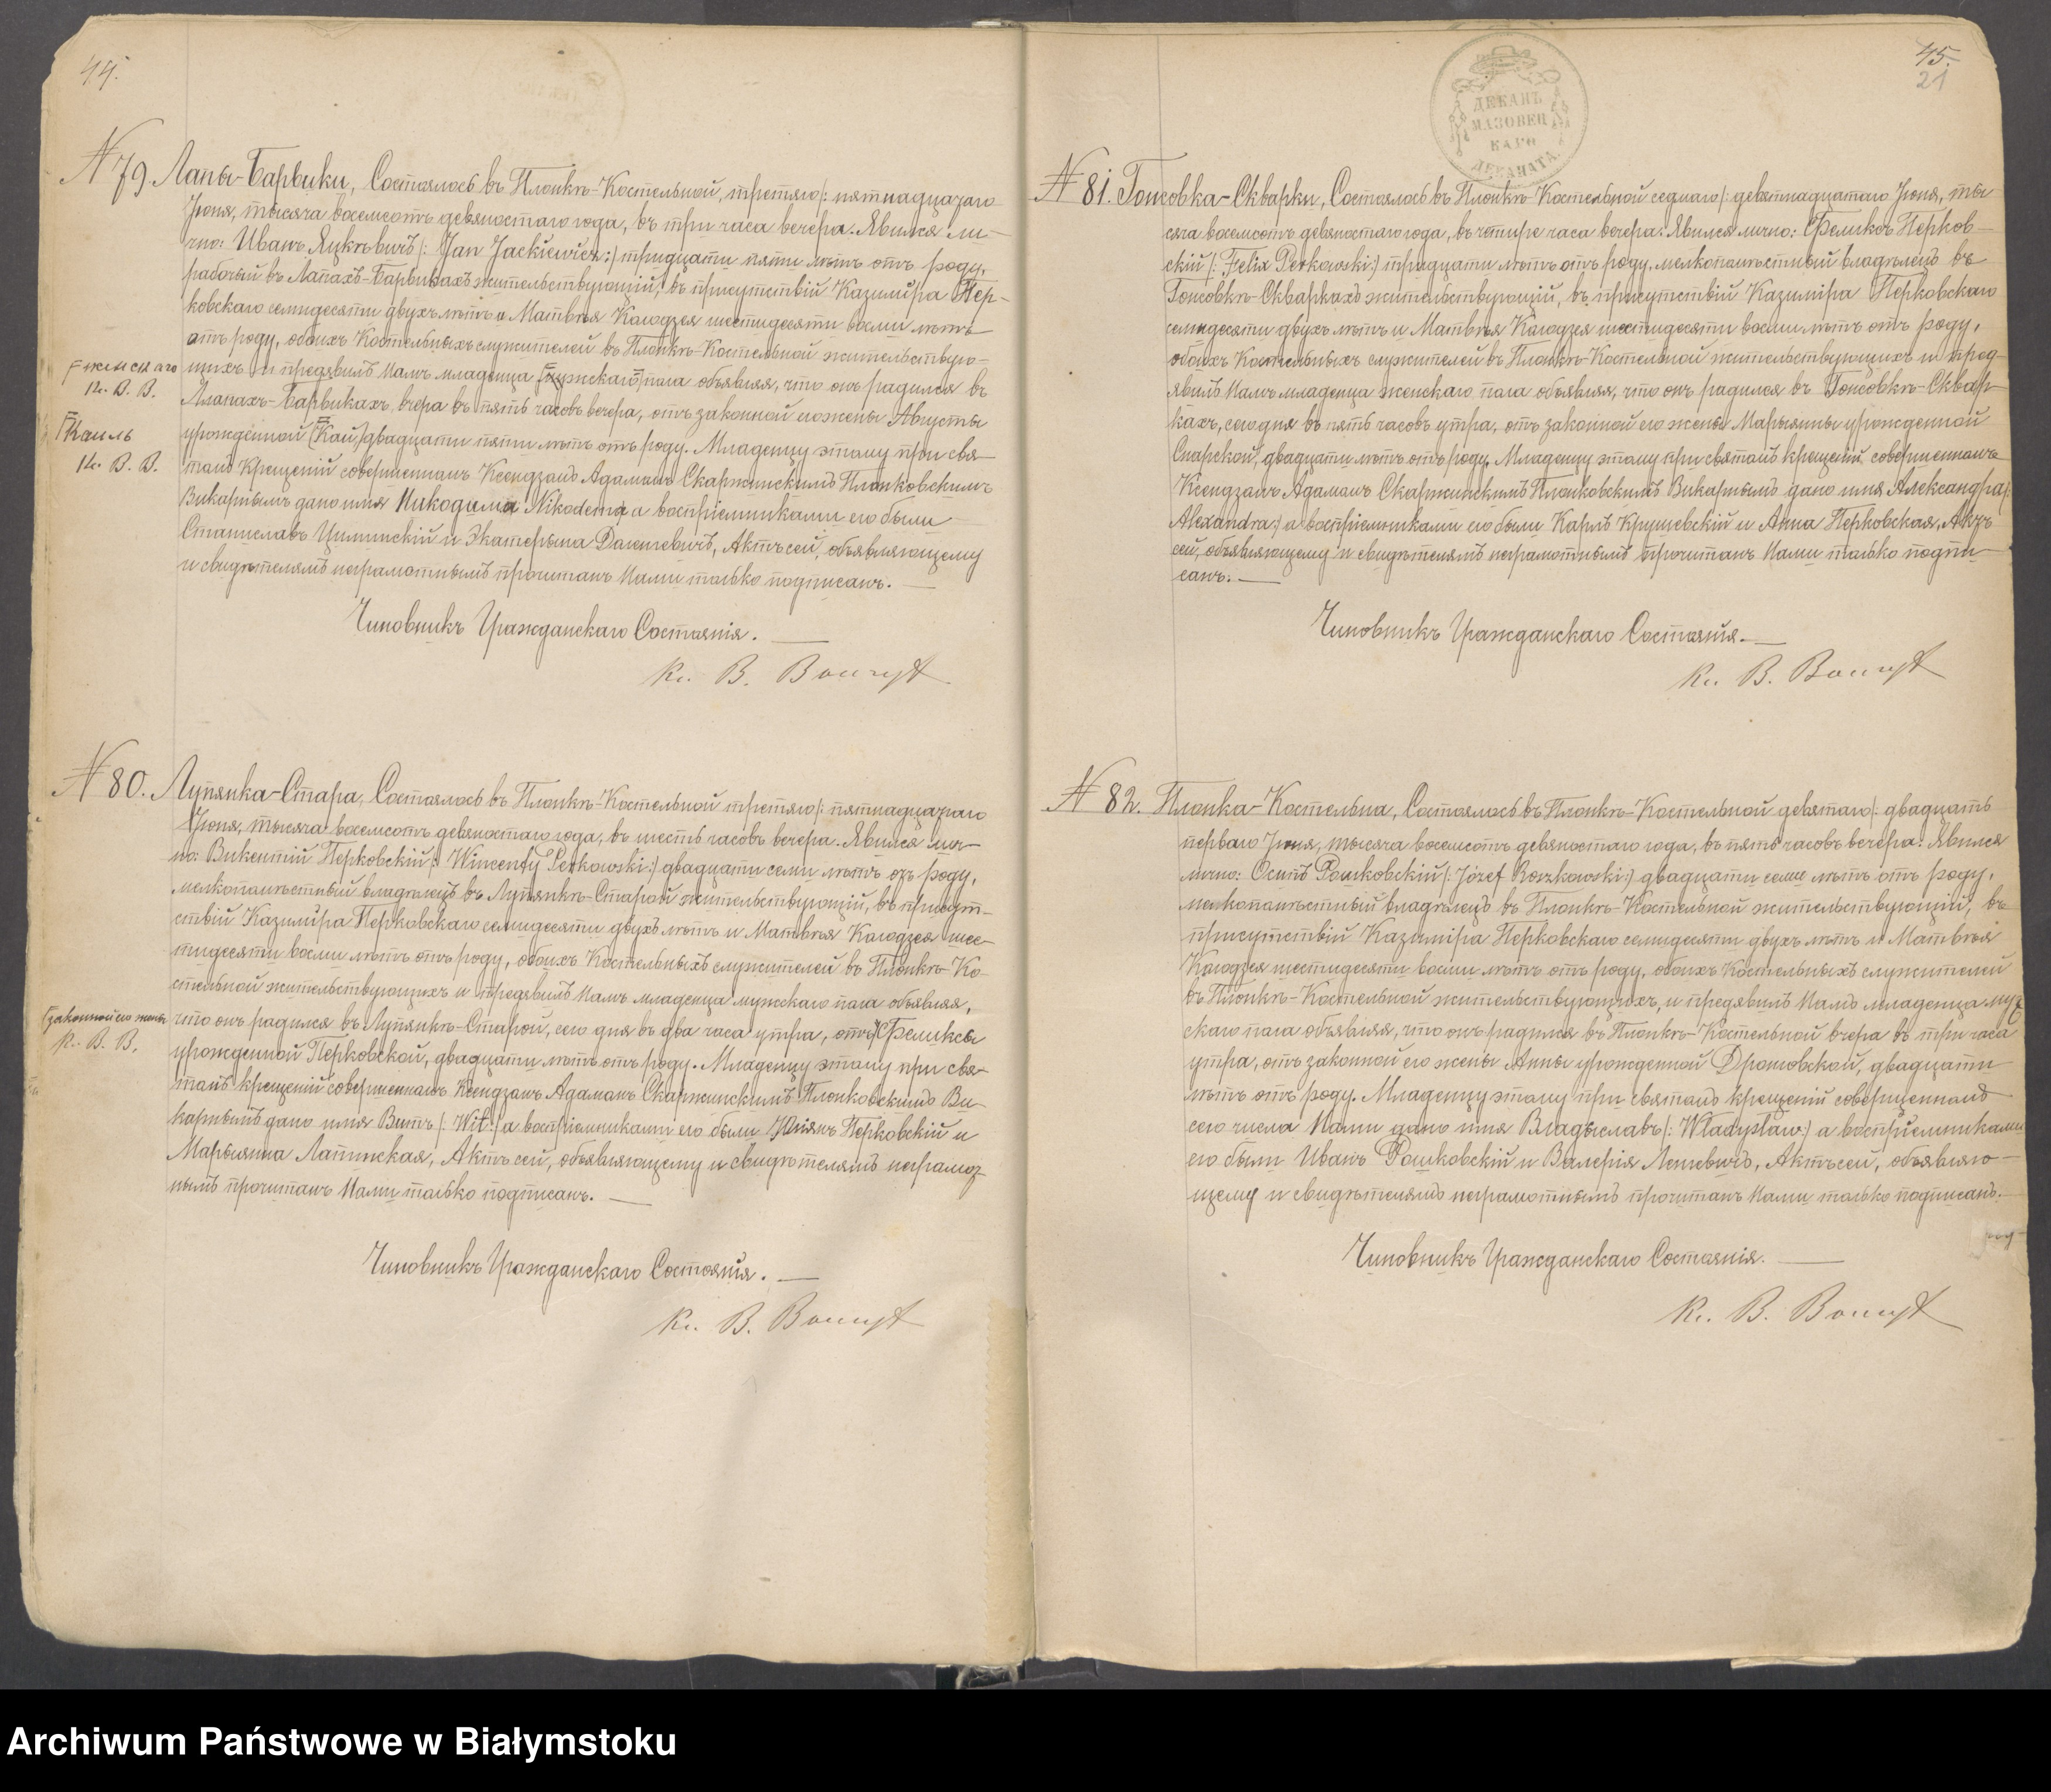 44.
N 79. Лапы-Барвики, Состоялось въ Плонкѣ-Костельной, третяго /: пятнадцатаго
Іюня, тысяча восемсотъ девяностаго года, въ три часа вечера. Явился ли-
чно: Иванъ Яцкѣвичъ /: Jan Jackiewicz :/ тридцати пяти лѣтъ отъ роду,
рабочій въ Лапахъ-Барвикахъ жительствующій, въ присутствій Казиміра Пер-
ковскаго семидесяти двухъ лѣтъ и Матвѣя Каюдзея шестидесяти восми лѣтъ
отъ роду, обоихъ Костельныхъ служителей въ Плонкѣ-Костельной жительствую-
женскаго
щихъ и предявилъ Намъ младенца мужскаго пола объявляя, что онъ радился въ
Кс. В. В.
Лапахъ-Барвикахъ, вчера въ пять часовъ вечера, отъ законной его жены Августы
Кациль
урожденной Кац двадцати пяти лѣтъ отъ роду. Младенцу этому при свя-
Кс. В. В.
томъ Крещеній совершенномъ Ксендзомъ Адамомъ Скаржинскимъ Плонковскимъ
Викарнымъ дано имя Никодима Nikodema а воспріемниками его были
Станиславъ Цихинскій и Экатерына Дашкевичъ, Актъ сей, объявляющему
и свидѣтелямъ неграмотнымъ прочитанъ Нами только подписанъ.
Чиновникъ Гражданскаго Состоянія.
Кс. В.
N 80. Лупянка-Стара, Состоялось въ Плонкѣ-Костельной третяго /: пятнадцатаго
Іюня, тысяча восемсотъ девяностаго года, въ шесть часовъ вечера. Явился лич-
но: Викентій Перковскій /: Wincenty Perkowski :/ двадцати семи лѣтъ отъ роду,
мелкопомѣстный владѣлецъ въ Лупянкѣ-Старой жительствующій, въ присут-
ствій Казиміра Перковскаго семидесяти двухъ лѣтъ и Матвѣя Каюдзея шес-
тидесяти восми лѣтъ отъ роду, обоихъ Костельныхъ служителей въ Плонкѣ-Ко-
стельной жительствующихъ и предявилъ Намъ младенца мужскаго пола объявляя,
законной его жены
что онъ радился въ Лупянкѣ-Старой, сего дня въ два часа утра, отъ Феликсы
Кс. В. В.
урожденной Перковской, двадцати лѣтъ отъ роду. Младенцу этому при свя-
томъ крещеній совершенномъ Ксендзомъ Адамомъ Скаржинскимъ Плонковскимъ Ви-
карнымъ дано имя Витъ /: Wit :/ а воспріемниками его были Юліянъ Перковскій и
Марыянна Лапинская, Актъ сей, объявляющему и свидѣтелямъ неграмот-
нымъ прочитанъ Нами только подписанъ.
Чиновникъ Гражданскаго Состоянія.
Кс. В.
45.
21
ДЕКАНЪ
МАЗОВЕЦ
КАГО
ДЕКАНАТА
N 81. Гонсовка-Скварки, Состоялось въ Плонкѣ-Костельной седмаго /: девятнадцатаго Іюня, ты
сяча восемсотъ девяностаго года, въ четыре часа вечера. Явился лично: Феликсъ Перков-
скій /: Felix Perkowski :/ тридцати лѣтъ отъ роду, мелкопомѣстный владѣлецъ въ
Гонсовкѣ-Скваркахъ жительствующій, въ присутствій Казиміра Перковскаго
семидесяти двухъ лѣтъ и Матвѣя Каюдзея шестидесяти восми лѣтъ отъ роду,
обоихъ Костельныхъ служителей въ Плонкѣ-Костельной жительствующихъ и пред-
явилъ Намъ младенца женскаго пола объявляя, что онъ радился въ Гонсовкѣ-Сквар-
кахъ, сегодня въ пять часовъ утра, отъ законной его жены Марыянны урожденной
двадцати лѣтъ отъ роду. Младенцу этому при святомъ крещеній совершенномъ
Ксендзомъ Адамомъ Скаржинскимъ Плонковскимъ Викарнымъ дано имя Александра /:
Alexandra :/ а воспріемниками его были Карлъ Крушевскій и Анна Перковская, Актъ
сей, объявляющему и свидѣтелямъ неграмотнымъ прочитанъ Нами только подпи-
санъ.
Чиновникъ Гражданскаго Состоянія.
Кс. В.
N 82. Плонка-Костельна, Состоялось въ Плонкѣ-Костельной девятаго /: двадцать
перваго Іюня, тысяча восемсотъ девяностаго года, въ пять часовъ вечера. Явился
лично: Осипъ Рошковскій /: Józef Roszkowski :/ двадцати семи лѣтъ отъ роду,
мелкопомѣстный владѣлецъ въ Плонкѣ-Костельной жительствующій, въ
присутствій Казиміра Перковскаго семидесяти двухъ лѣтъ и Матвѣя
Каюдзея шестидесяти восми лѣтъ отъ роду, обоихъ Костельныхъ служителей
въ Плонкѣ-Костельной жительствующихъ, и предявилъ Намъ младенца муж
скаго пола объявляя, что онъ радился въ Плонкѣ-Костельной вчера въ три часа
утра, отъ законной его жены Анны урожденной Дроговской, двадцати
лѣтъ отъ роду. Младенцу этому при святомъ крещеній совершенномъ
сего числа Нами дано имя Владыславъ /: Władysław :/ а воспріемниками
его были Иванъ Рошковскій и Валерія Лешевичъ, Актъ сей, объявляю-
щему и свидѣтелямъ неграмотнымъ прочитанъ Нами только подписанъ.
Чиновникъ Гражданскаго Состоянія.
Кс. В.
Archiwum Państwowe w Białymstoku